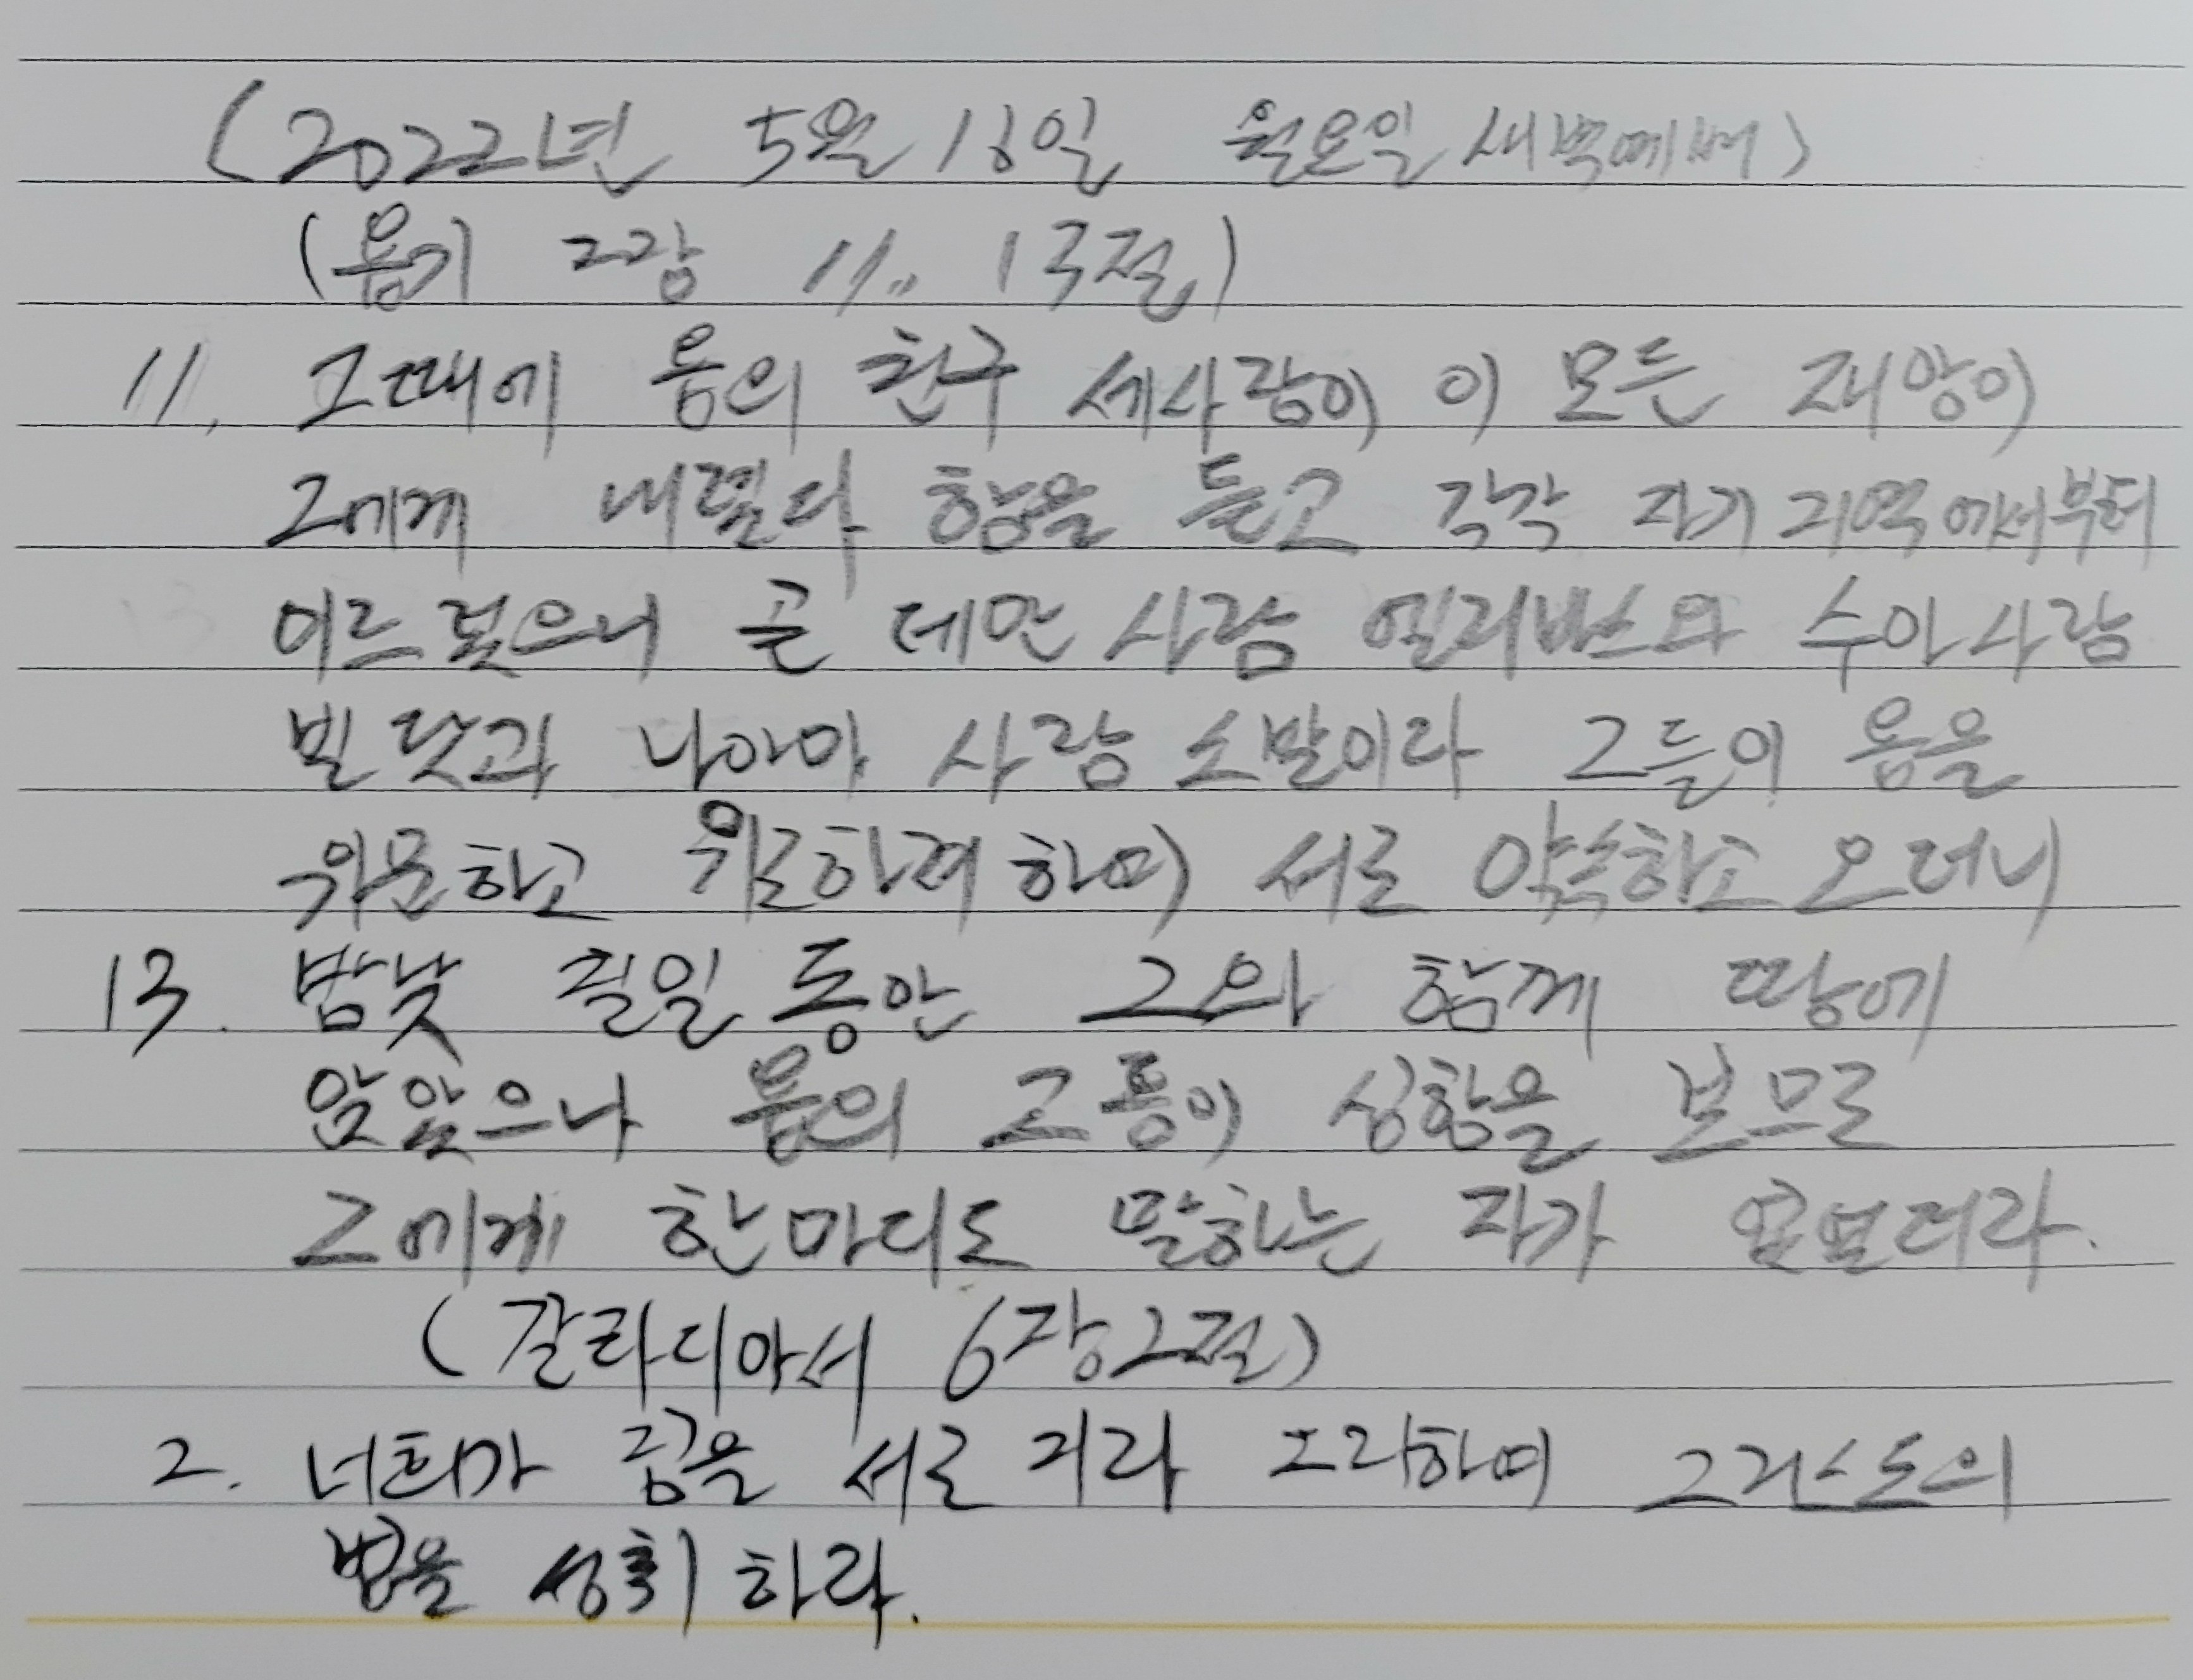 (2022년 5월 16일 월요일 새벽예배)
(욥기 2장 11,, 13절)
11. 그때에 욥의 친구 세사람이 이 모든 재앙이
그에게 내렸다 함을 듣고 각각 자기 지역에서부터
이르렀으니 곧 데만 사람 엘리바스와 수아사람
빌닷과 나아마 사람 소발이라 그들이 욥을
위문하고 위로하려 하여 서로 약속하고 오더니
13. 밤낮 칠일 동안 그와 함께 땅에
앉았으나 욥의 고통이 심함을 보므로
그에게 한마디도 말하는 자가 없었더라.
(갈라디아서 6장2절)
2. 너희가 짐을 서로 지라 그리하여 그리스도의
법을 성취하라.